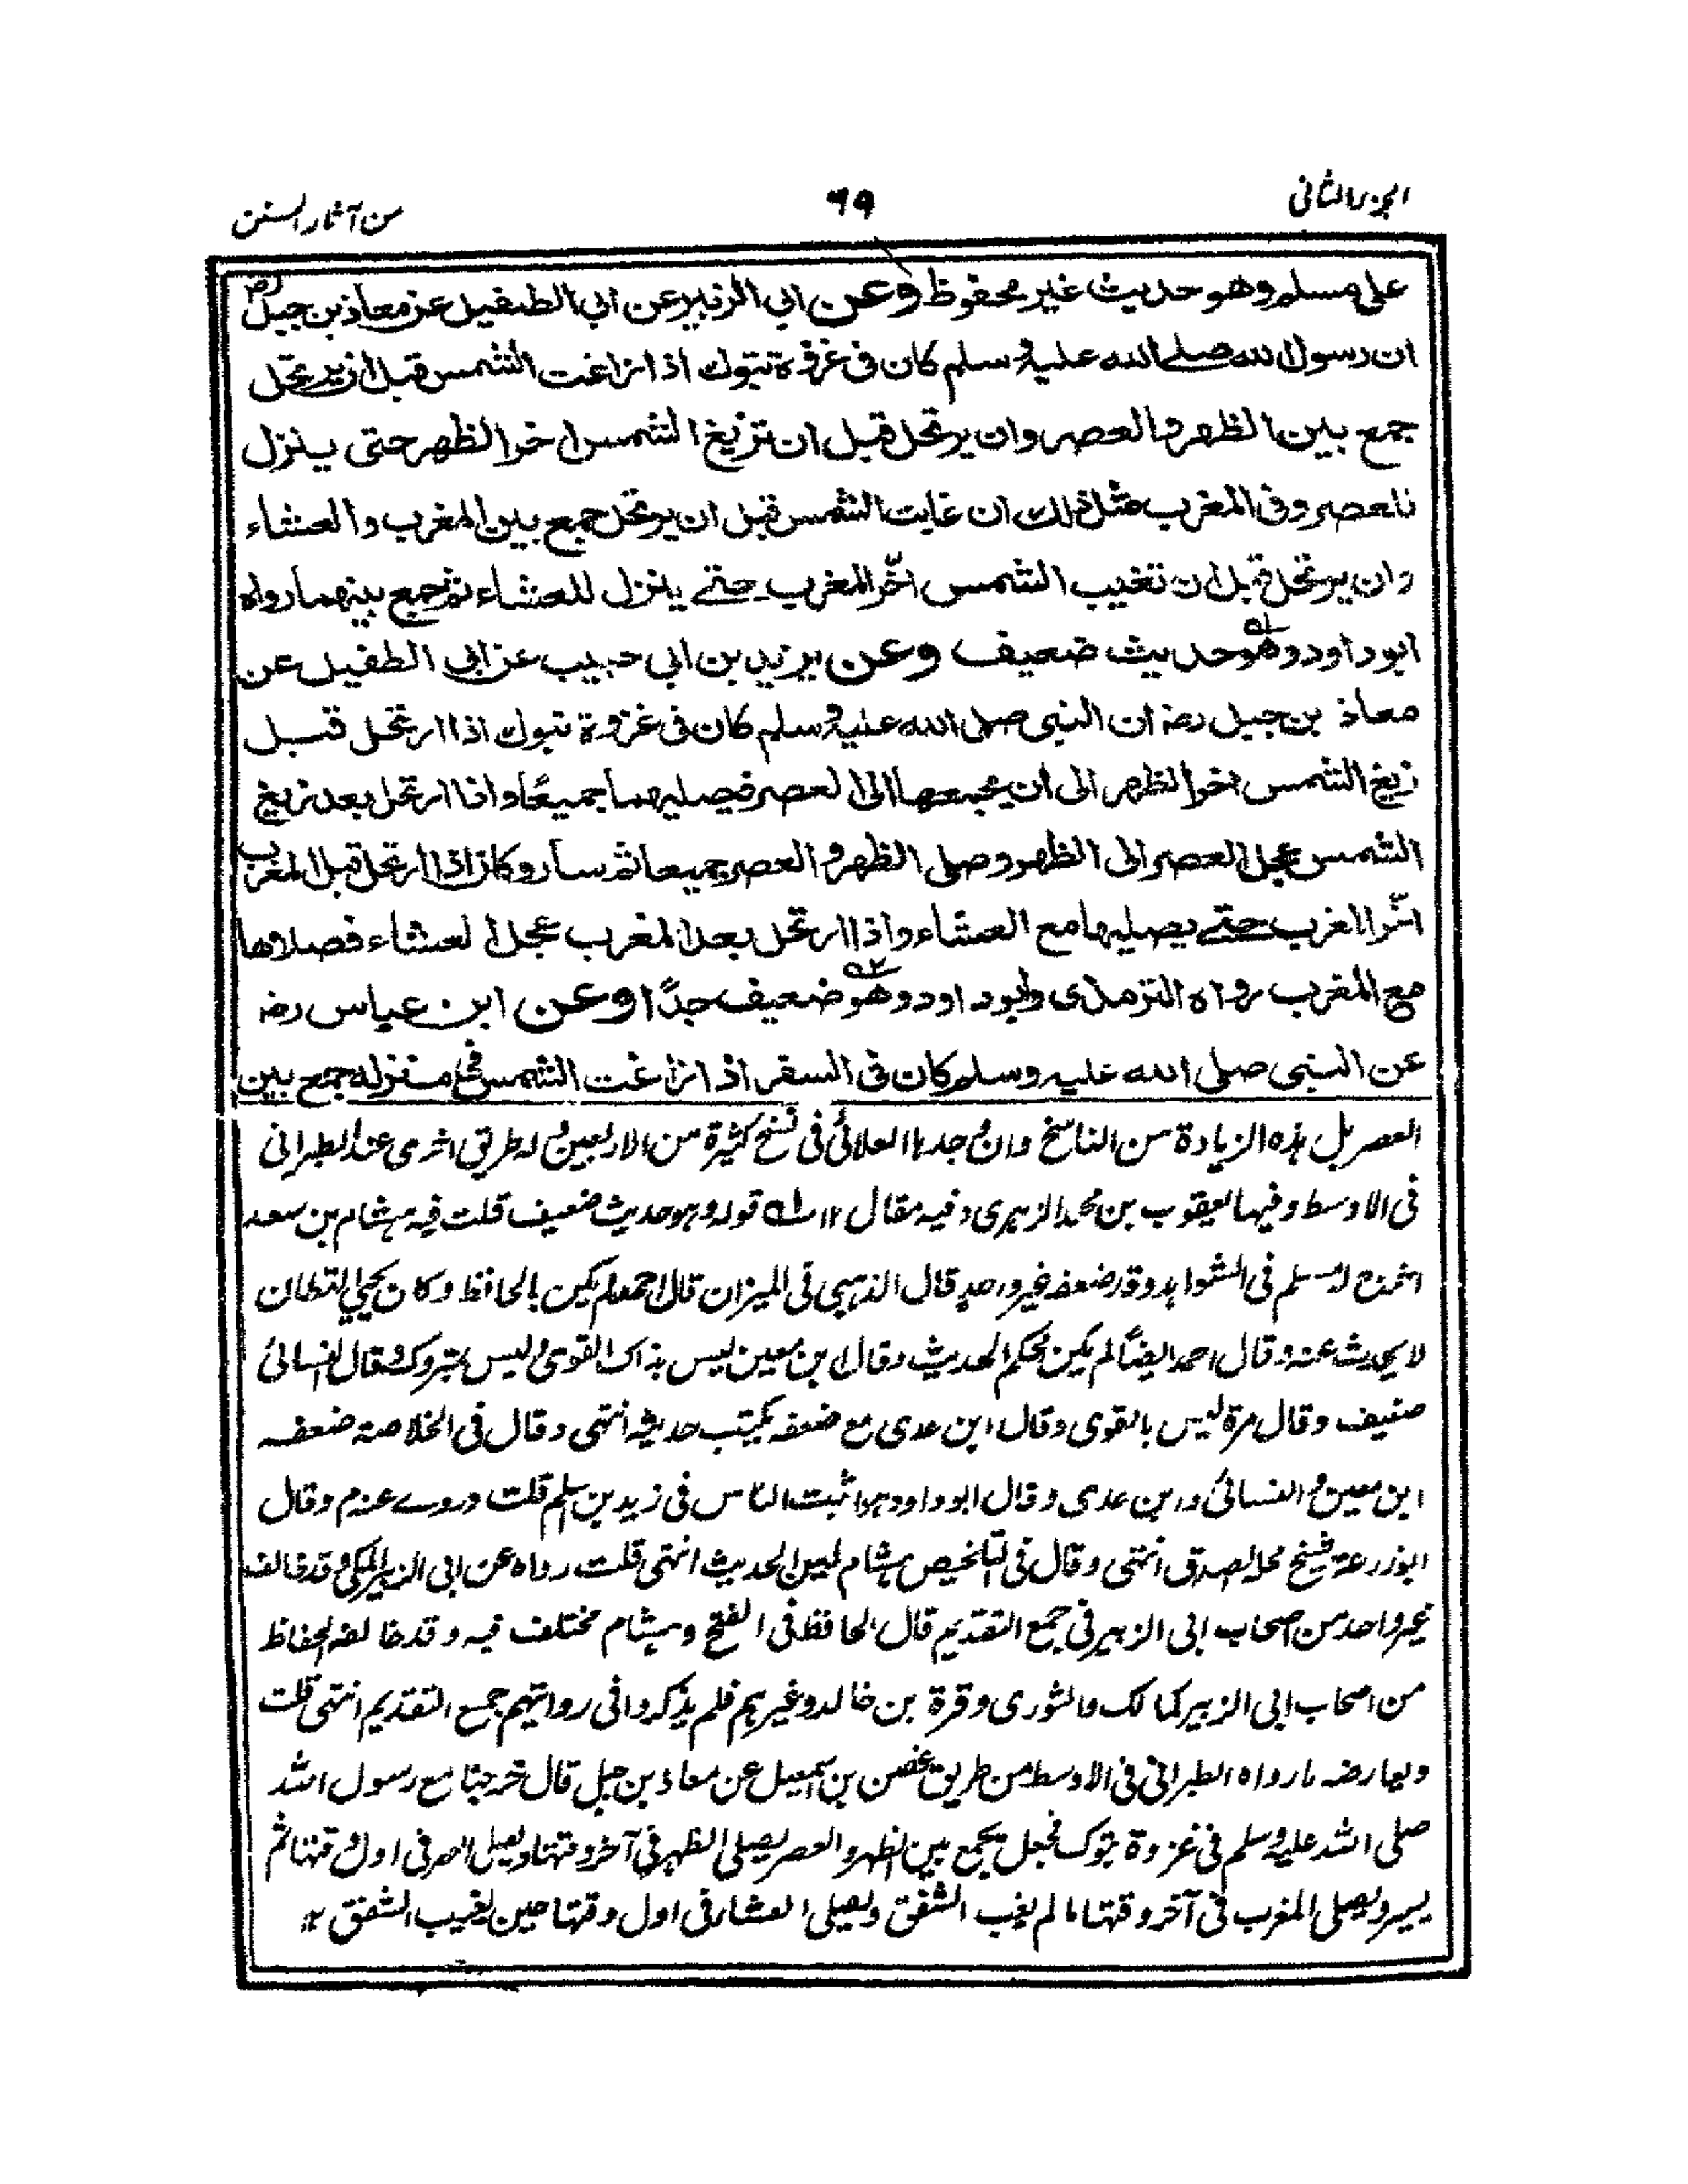 الجزء الثانی
٦٩
من آثار السنن
علی مسلم وهو حدیث غیر محفوظ وعن ابی الزبیر عن ابی الطفیل عن معاذ بن جبل رض
ان رسول الله صلے الله علیه وسلم کان فی غزوة تبوک اذا زاغت الشمس قبل ان یرتحل
جمع بین الظهر والعصر وان یرتحل قبل ان تزیغ الشمس اخر الظهر حتی ینزل
للعصر وفی المغرب مثل ذلک ان غابت الشمس قبل ان یرتحل جمع بین المغرب والعشاء
وان یرتحل قبل ان تغیب الشمس اخّر المغرب حتے ینزل للعشاء ثم جمع بینهما رواه
ابو داود وهو حدیث ضعیف وعن یزید بن ابی حبیب عن ابی الطفیل عن
معاذ بن جبل رضہ ان النبی صلی الله علیه وسلم کان فی غزوة تبوک اذا ارتحل قبل
زیغ الشمس اخر الظهر الی ان یجمعها الی العصر فیصلیهما جمیعًا واذا ارتحل بعد زیغ
الشمس عجل العصر الی الظهر وصلی الظهر والعصر جمیعا ثم سار وکان اذا ارتحل قبل المغرب
اخّر المغرب حتے یصلیها مع العشاء واذا ارتحل بعد المغرب عجل العشاء فصلاها
مع المغرب رواه الترمذی وابو داود وهو ضعیف جدًّا وعن ابن عباس رضہ
عن النبی صلی الله علیه وسلم کان فی السفر اذا زاغت الشمس فی منزله جمع بین
العصر بل هذه الزیادة من الناسخ وان وجدها العلائی فی نسخ کثیرة من الاربعین وله طریق اخری عند الطبرانی
فی الاوسط وفیها یعقوب بن محمد الزهری وفیه مقال ١٢ ١ه قوله وهو حدیث ضعیف قلت فیه هشام بن سعد
اخرج له مسلم فی الشواهد وقد ضعفه غیر واحد قال الذهبی فی المیزان قال احمد لم یکن بالحافظ وکان یحیی القطان
لا یحدث عنه وقال احمد ایضًا لم یکن محکم الحدیث وقال ابن معین لیس بذاک القوی ولیس بمتروک وقال النسائی
ضعیف وقال مرة لیس بالقوی وقال ابن عدی مع ضعفه یکتب حدیثه انتهی وقال فی الخلاصة ضعفه
ابن معین والنسائی وابن عدی وقال ابو داود هو اثبت الناس فی زید بن اسلم قلت وروے عنه م وقال
ابو زرعة شیخ محله الصدق انتهی وقال فی التلخیص هشام لین الحدیث انتهی قلت رواه عن ابی الزبیر المکی وقد خالفه
غیر واحد من اصحاب ابی الزبیر فی جمع التقدیم قال الحافظ فی الفتح وهشام مختلف فیه وقد خالفه الحفاظ
من اصحاب ابی الزبیر کمالک والثوری وقرة بن خالد وغیرهم فلم یذکروا فی روایتهم جمع التقدیم انتهی قلت
ویعارضه ما رواه الطبرانی فی الاوسط من طریق غصن بن اسمعیل عن معاذ بن جبل قال خرجنا مع رسول الله
صلی الله علیه وسلم فی غزوة تبوک فجعل یجمع بین الظهر والعصر یصلی الظهر فی آخر وقتها ویصلی العصر فی اول وقتها ثم
یسیر ویصلی المغرب فی آخر وقتها ما لم یغب الشفق ویصلی العشاء فی اول وقتها حین یغیب الشفق ١٢